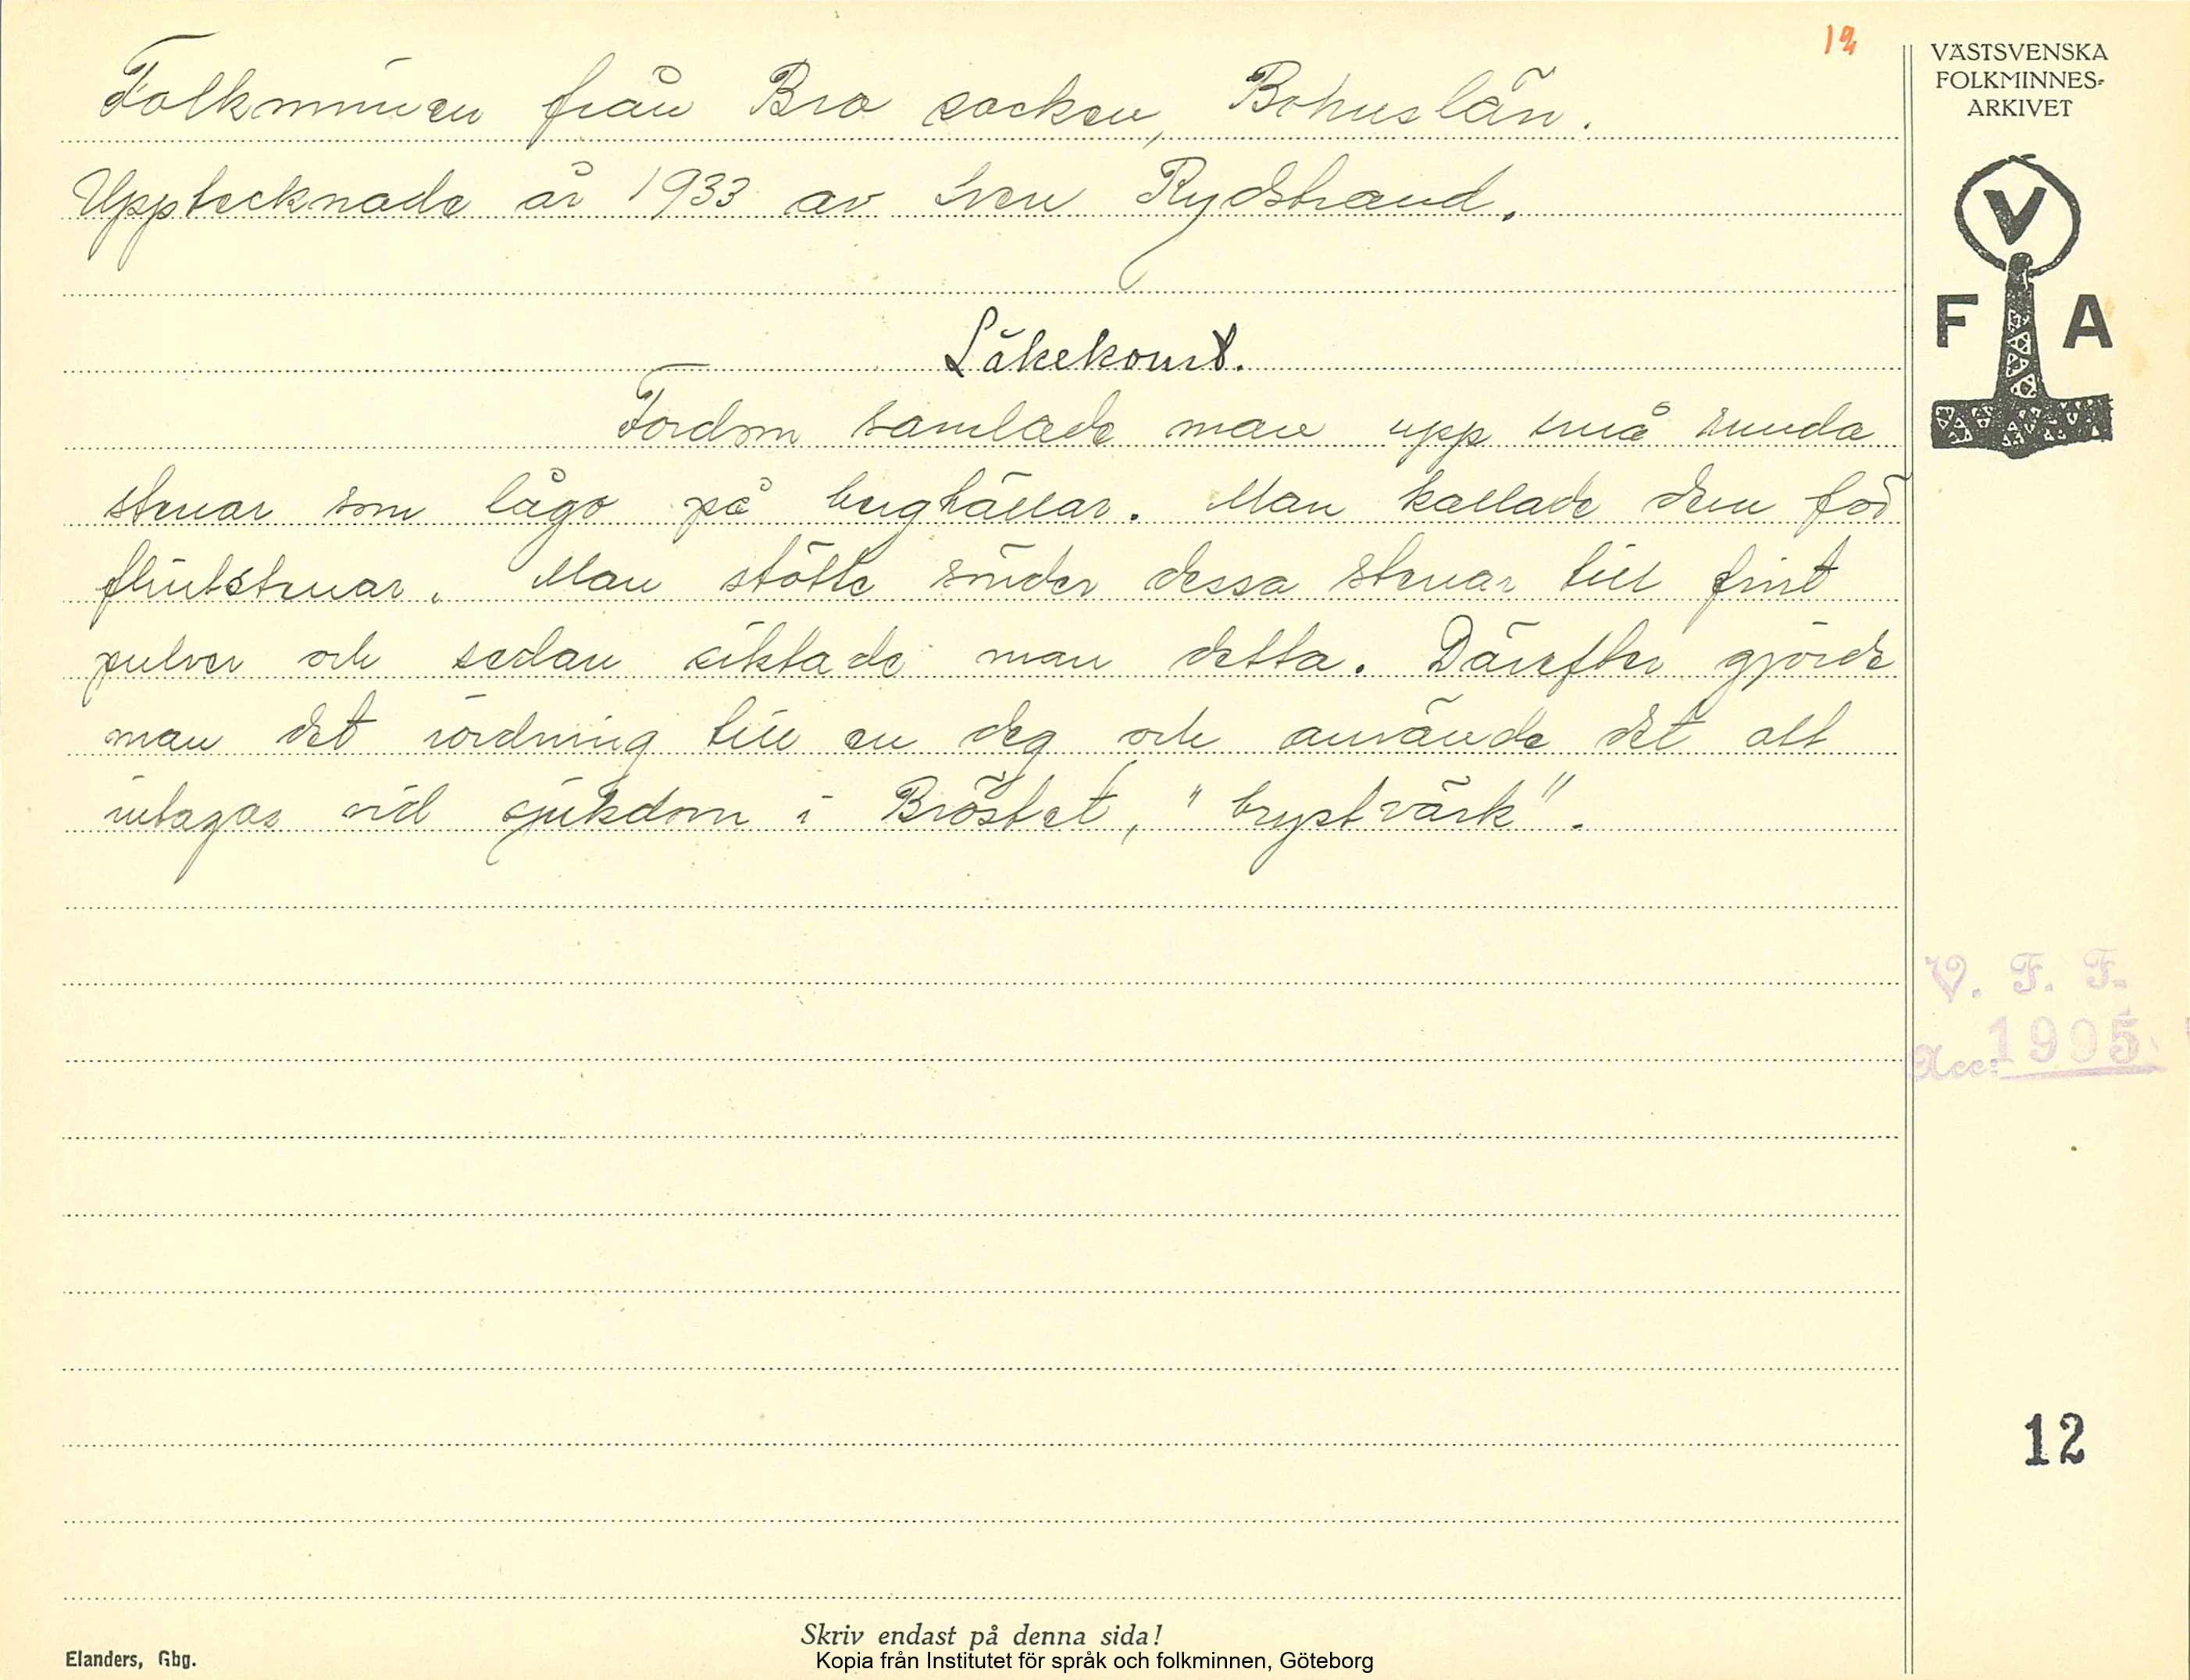 12
VÄSTSVENSKA
FOLKMINNES-
ARKIVET
V
F A
Folkminnen från Bro socken, Bohuslän.
Upptecknade år 1933 av Sven Rydstrand.
Läkekonst.
Fordom samlade man upp små runda
stenar som lågo på berghällar. Man kallade dem för
flintstenar. Man stötte sönder dessa stenar till fint
pulver och sedan siktade man detta. Därefter gjorde
man det iordning till en deg och använde det att
intagas vid sjukdom i Bröstet, "brystvärk".
V. F. F.
Acc: 1995
12
Skriv endast på denna sida!
Elanders, Gbg.
Kopia från Institutet för språk och folkminnen, Göteborg